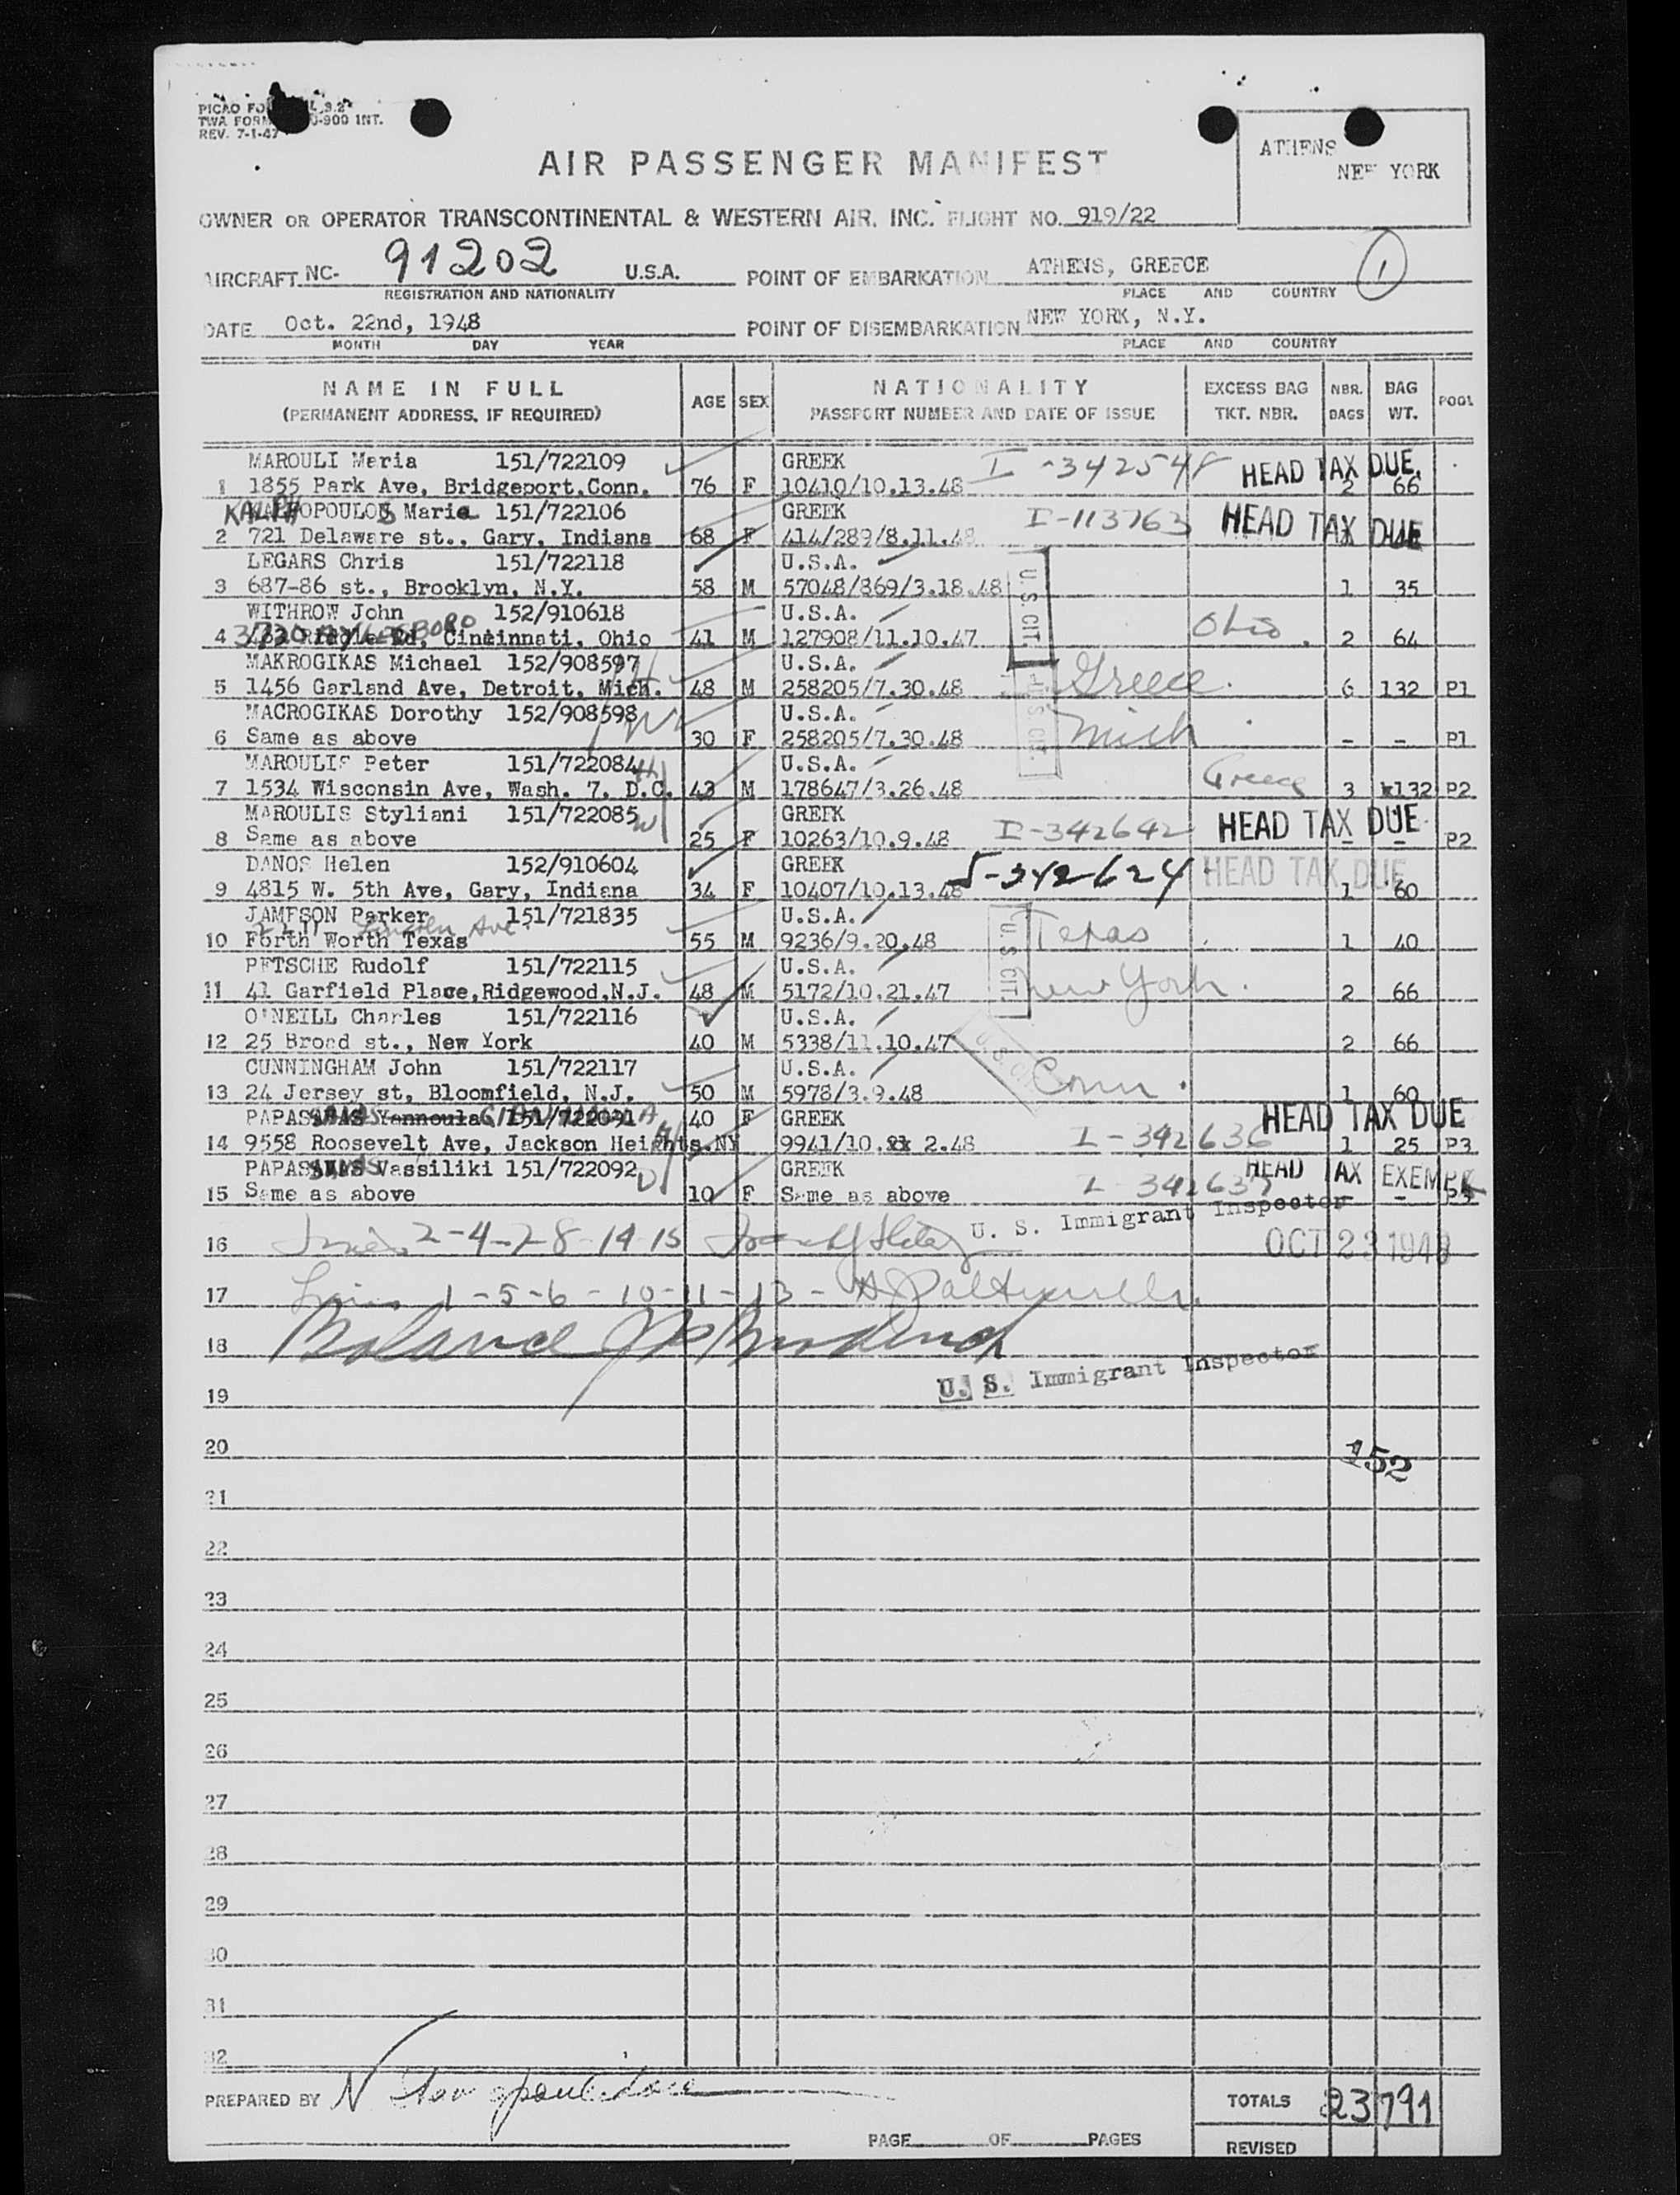 PICAO FO
TWA FORM 0-900 INT.
REV. 7-1-47
ATHENS
NEW YORK
AIR PASSENGER MANIFEST
OWNER OR OPERATOR TRANSCONTINENTAL & WESTERN AIR, INC. FLIGHT NO. 919/22
AIRCRAFT NC- 91202 U.S.A. POINT OF EMBARKATION ATHENS, GREECE 1
REGISTRATION AND NATIONALITY PLACE AND COUNTRY
DATE Oct. 22nd, 1948 POINT OF DISEMBARKATION NEW YORK, N.Y.
MONTH DAY YEAR PLACE AND COUNTRY
NAME IN FULL AGE SEX NATIONALITY EXCESS BAG NBR. BAG POOL
(PERMANENT ADDRESS, IF REQUIRED) PASSPORT NUMBER AND DATE OF ISSUE TKT. NBR. BAGS WT.
MAROULI Maria 151/722109 GREEK I-342548 HEAD TAX DUE
1 1855 Park Ave, Bridgeport,Conn. 76 F 10410/10.13.48 2 66
KALPHOPOULOS Maria 151/722106 GREEK I-113763 HEAD TAX DUE
2 721 Delaware st., Gary, Indiana 68 F 414/289/8.11.48
LEGARS Chris 151/722118 U.S.A.
3 687-86 st., Brooklyn, N.Y. 58 M 57048/869/3.18.48 U.S. CIT. 1 35
WITHROW John 152/910618 U.S.A. Ohio
4 Rd, Cincinnati, Ohio 41 M 127908/11.10.47 2 64
MAKROGIKAS Michael 152/908597 U.S.A. Greece
5 1456 Garland Ave, Detroit, Mich. 48 M 258205/7.30.48 6 132 P1
MACROGIKAS Dorothy 152/908598 U.S.A. U.S. CIT. Mich
6 Same as above 30 F 258205/7.30.48 - - P1
MAROULIS Peter 151/722084 H U.S.A. Greece
7 1534 Wisconsin Ave, Wash. 7, D.C. 43 M 178647/3.26.48 3 132 P2
MAROULIS Styliani 151/722085 W GREEK I-342642 HEAD TAX DUE
8 Same as above 25 F 10263/10.9.48 - - P2
DANOS Helen 152/910604 GREEK I-342624 HEAD TAX DUE
9 4815 W. 5th Ave, Gary, Indiana 34 F 10407/10.13.48 1 60
JAMESON Parker 151/721835 U.S.A. Texas
Lincoln Ave.
10 Forth Worth Texas 55 M 9236/9.20.48 U S CIT. 1 40
PETSCHE Rudolf 151/722115 U.S.A. New York
11 41 Garfield Place,Ridgewood,N.J. 48 M 5172/10.21.47 2 66
O'NEILL Charles 151/722116 U.S.A.
12 25 Broad st., New York 40 M 5338/11.10.47 2 66
CUNNINGHAM John 151/722117 U.S.A. Conn.
13 24 Jersey st, Bloomfield, N.J. 50 M 5978/3.9.48 1 60
Yannoula 151/722091 40 F GREEK HEAD TAX DUE
14 9558 Roosevelt Ave, Jackson Heights.NY 9941/10. 2.48 I-342636 1 25 P3
Vassiliki 151/722092 GREEK HEAD TAX EXEMPT
15 Same as above 10 F Same as above I-342637 - P3
U. S. Immigrant Inspector
16 Lines 2-4-7-8-14-15 OCT 23 1948
17 Lines 1-5-6-10-11-13-
18 Balance
U. S. Immigrant Inspector
19
20 152
21
22
23
24
25
26
27
28
29
30
31
32
PREPARED BY N TOTALS 23 791
PAGE OF PAGES REVISED